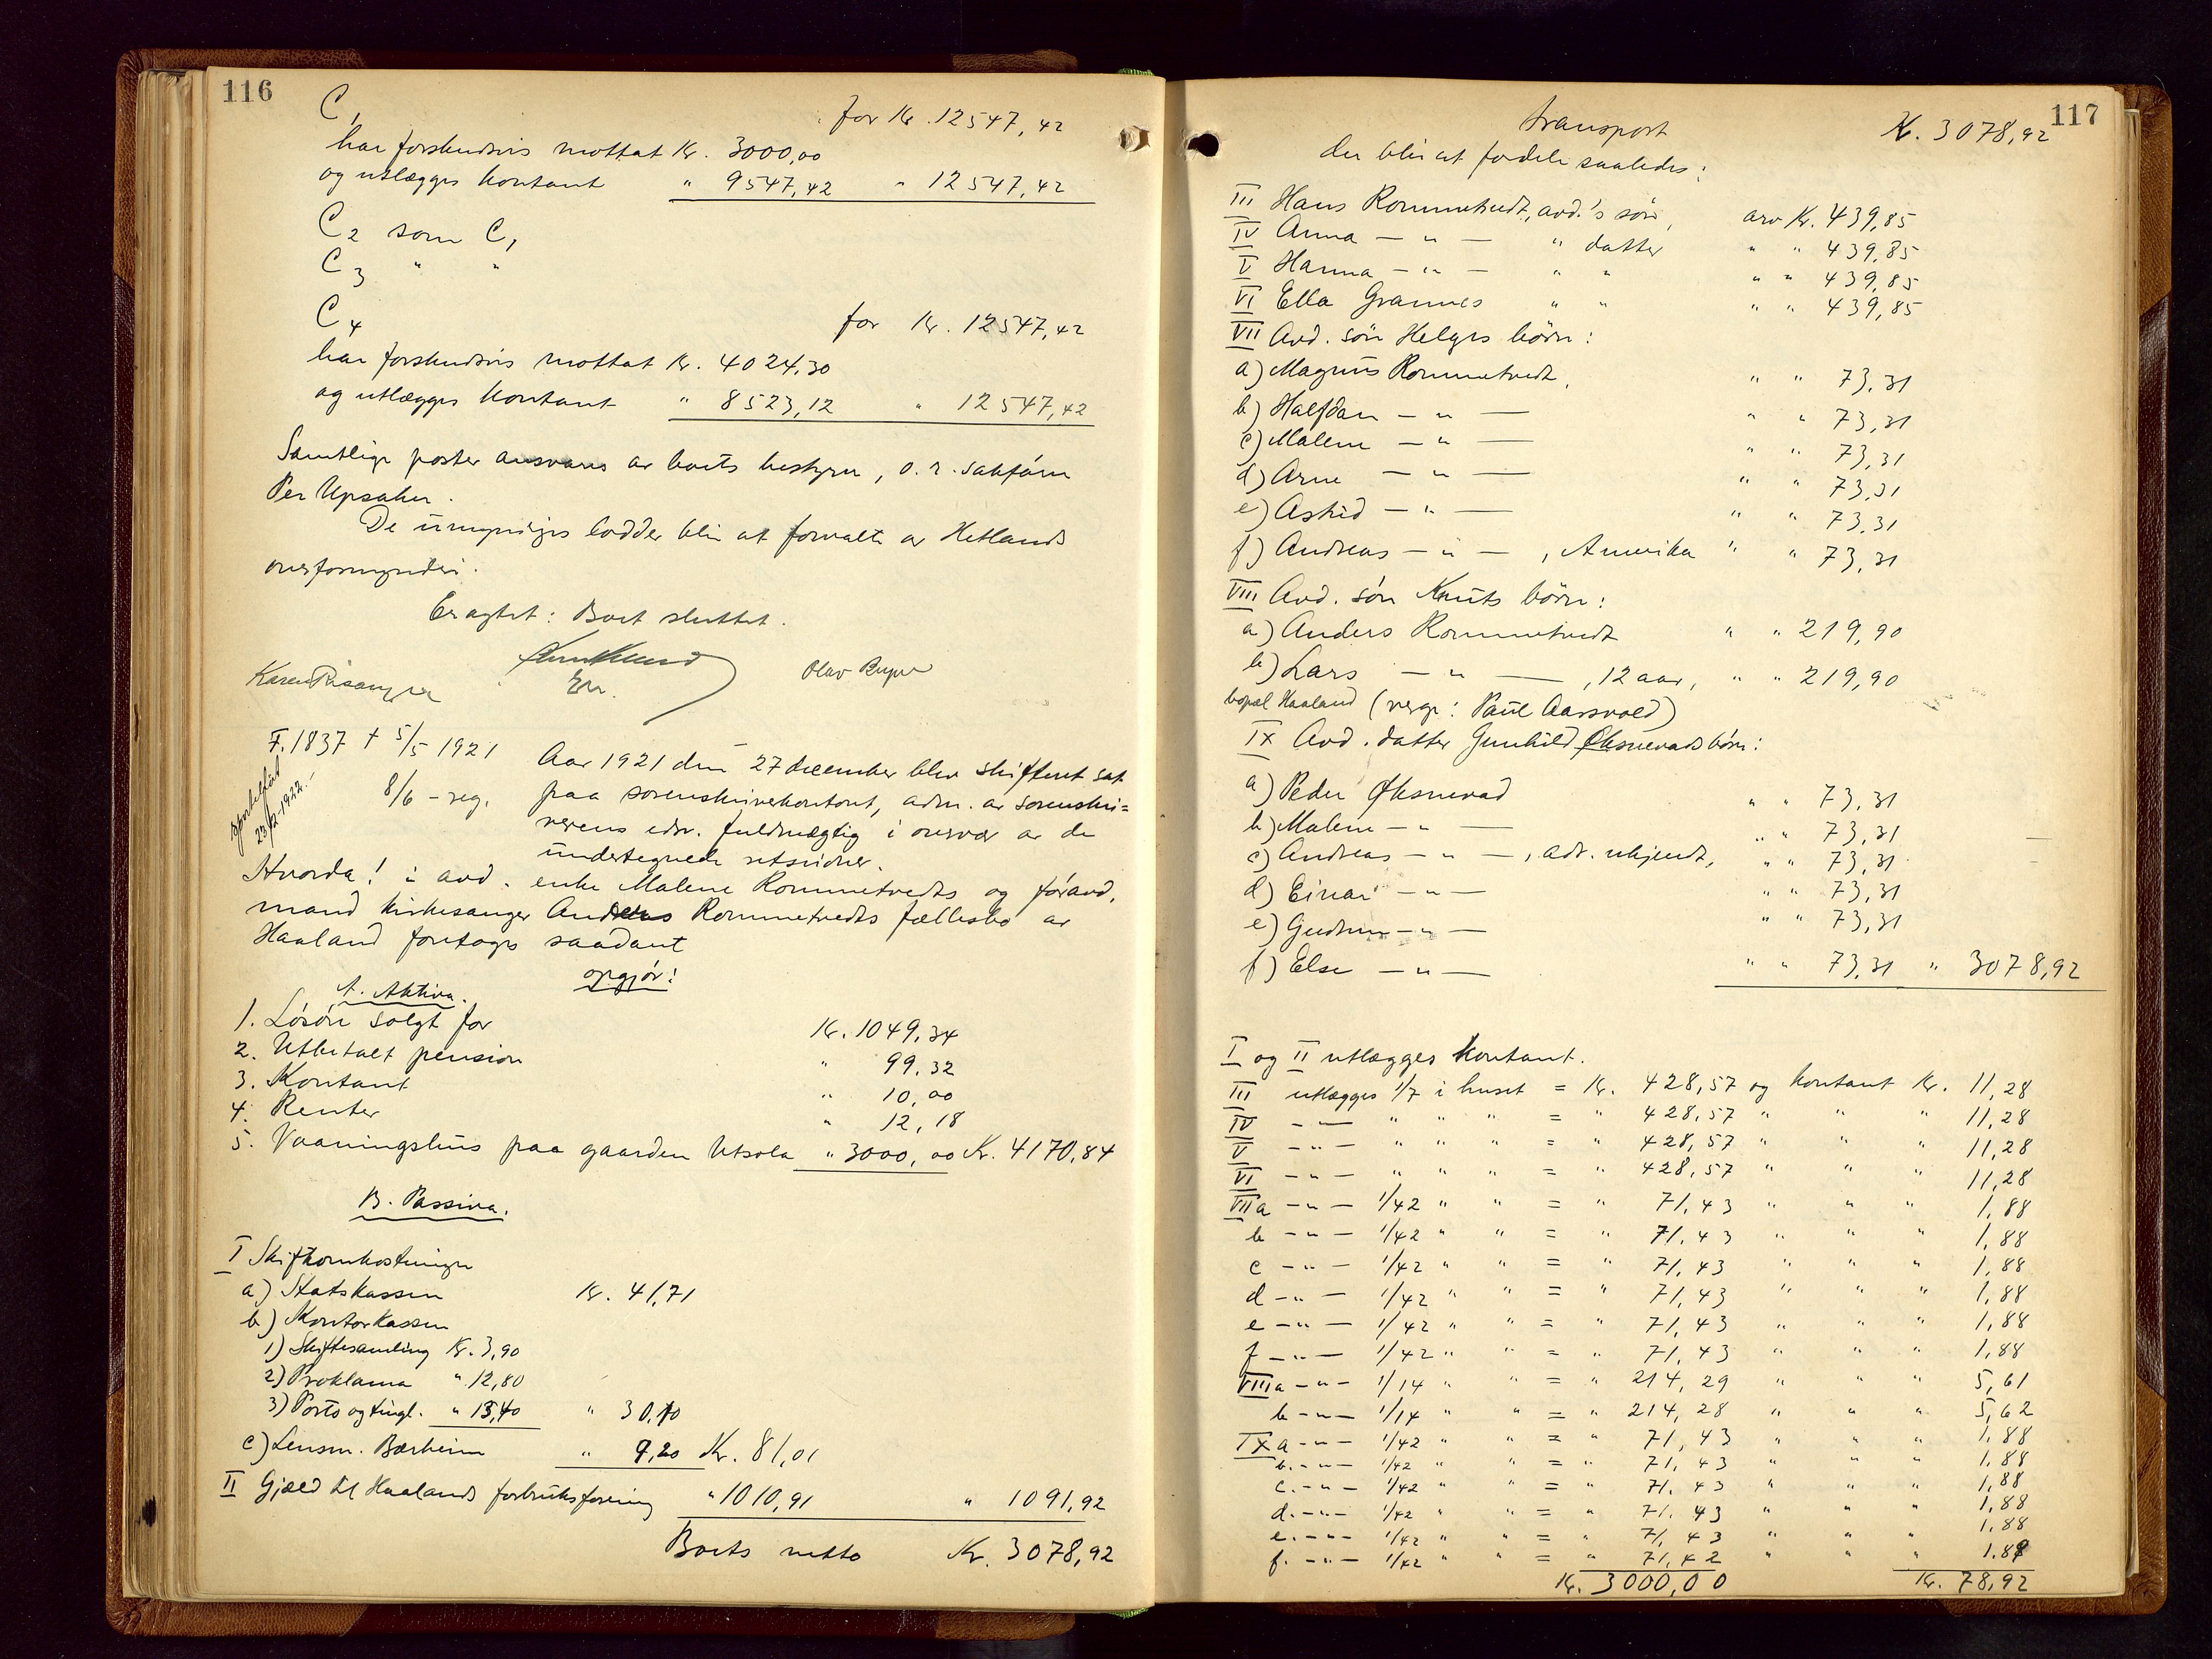 116
C1 for Kr. 12547,42
har forskudsvis mottat Kr. 3000,00
og utlægges kontant " 9547,42 " 12547,42
C2 som C1
C3 " "
C4 for Kr. 12547,42
har forskudsvis mottat Kr. 4024,30
og utlægges kontant " 8523,12 " 12547,42
Samtlige poster ansvares av boets bestyrer, o. r. sakfører
Per Upsaker.
De umyndiges lodder blir at forvalte av Hetlands
overformynderi.
Eragtet: Boet sluttet.
Karen Risanger
Olav
F. 1837 † 5/5 1921
8/6 - reg.
23/2 - 1922.!
Aar 1921 den 27 december blev skifteret sat
paa sorenskriverkontoret, adm. av sorenskri=
verens edsv. fuldmægtig i overvær av de
undertegnede retsvidner.
Hvorda! i avd. enke Malene Rommetvedts og føravd.
mand kirkesanger Anders Rommetvedts fællesbo av
Haaland foretoges saadant
opgjør:
A. Aktiva.
1. Løsøre solgt for Kr. 1049,34
2. Utbetalt pension " 99,32
3. Kontant " 10,00
4. Renter " 12,18
5. Vaaningshus paa gaarden Utsola " 3000,00 Kr. 4170,84
B. Passiva.
I Skifteomkostninger
a) Statskassen Kr. 41,71
b) Kontorkassen
1) Skiftesamling Kr. 3,90
2) Proklama " 12,80
3) Porto og tingl. " 13,40 " 30,10
c) Lensm. Bærheim " 9,20 Kr. 81,01
II Gjæld til Haalands forbruksforening " 1010,91 " 1091,92
Boets netto Kr. 3078,92
117
transport Kr. 3078,92
der blir at fordele saaledes:
III Hans Rommetvedt, avd.'s søn, arv Kr. 439,85
IV Anna — " — " datter " " 439,85
V Hanna — " — " " " " 439,85
VI Ella Grannes " " " " 439,85
VII Avd. søn Helges børn:
a) Magnus Rommetvedt, " " 73,31
b) Halfdan — " — " " 73,31
c) Malene — " — " " 73,31
d) Arne — " — " " 73,31
e) Astrid — " — " " 73,31
f) Andreas — " — , Amerika " " 73,31
VIII Avd. søn Knuts børn:
a) Anders Rommetvedt " " 219,90
b) Lars — " — , 12 aar, " " 219,90
bopæl Haaland (verge: Paul Aarsvold)
IX Avd. datter Gunhild Øksnevads børn:
a) Peder Øksnevad " " 73,31
b) Malene — " — " " 73,31
c) Andreas — " — , adr. ukjendt, " " 73,31
d) Einar — " — " " 73,31
e) Gudrun — " — " " 73,31
f) Else — " — " " 73,31 " 3078,92
I og II utlægges kontant.
III utlægges 1/7 i huset = Kr. 428,57 og kontant Kr. 11,28
IV — " — " " " = " 428,57 " " " 11,28
V — " — " " " = " 428,57 " " " 11,28
VI — " — " " " = " 428,57 " " " 11,28
VII a — " — 1/42 " " = " 71,43 " " " 1,88
b — " — 1/42 " " = " 71,43 " " " 1,88
c — " — 1/42 " " = " 71,43 " " " 1,88
d — " — 1/42 " " = " 71,43 " " " 1,88
e — " — 1/42 " " = " 71,43 " " " 1,88
f — " — 1/42 " " = " 71,43 " " " 1,88
VIII a — " — 1/14 " " = " 214,29 " " " 5,61
b — " — 1/14 " " = " 214,28 " " " 5,62
IX a — " — 1/42 " " = " 71,43 " " " 1,88
b. — " — 1/42 " " = " 71,43 " " " 1,88
c. — " — 1/42 " " = " 71,43 " " " 1,88
d. — " — 1/42 " " = " 71,43 " " " 1,88
e. — " — 1/42 " " = " 71,43 " " " 1,88
f. — " — 1/42 " " = " 71,42 " " " 1.89
Kr. 3000,00 Kr. 78,92